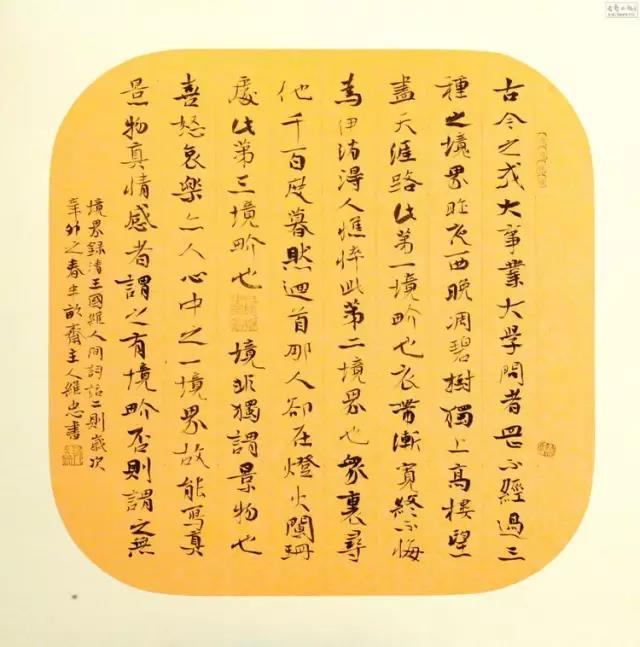 古今之成大事業大學問者罔不經過三
種之境界昨夜西晚凋碧樹獨上高樓望
盡天涯路此第一境畍也衣帶漸寬終不悔
為伊消得人憔悴此第二境界也眾裏尋
他千百度暮然迴首那人卻在燈火闌珊
處此第三境畍也 境非獨謂景物也
喜怒哀樂亦人心中之一境界故能寫真
景物真情感者謂之有境畍否則謂之無
境界錄清王國維人間詞話二則歲次
辛卯之春半畝齋主人維忠書